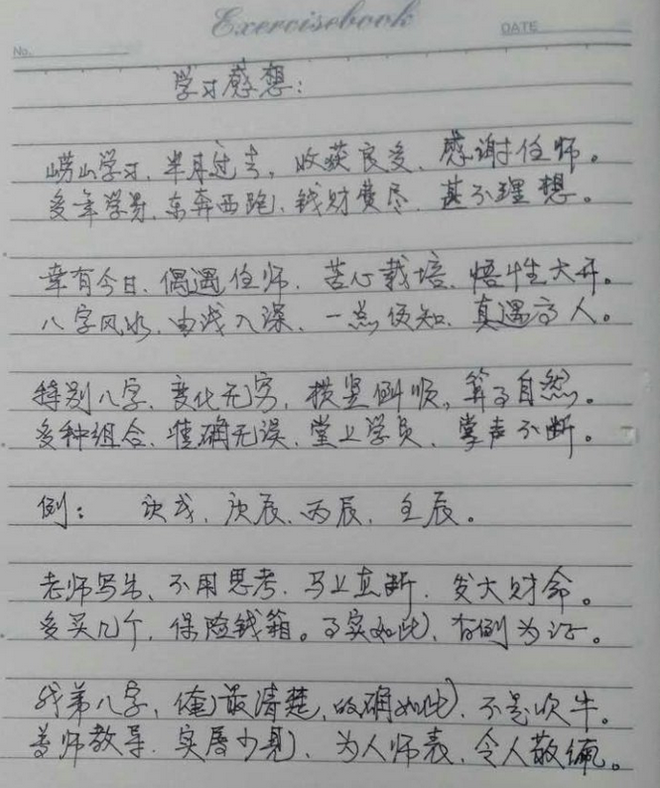 Exercisebook
No.
DATE
学习感想:
崂山学习、半月过去,收获良多、感谢任师。
多年学易、东奔西跑、钱财费尽、甚不理想。
幸有今日、偶遇任师、苦心栽培、悟性大开。
八字风水、由浅入深、一点便知、真遇高人。
特别八字、变化无穷,横竖倒顺,算子自然。
多种组合、准确无误、堂上学员、掌声不断。
例: 庚戌、庚辰、丙辰、壬辰。
老师写先、不用思考、马上直断、发大财命。
多买几个,保险钱箱。事实如此、有例为证。
我弟八字,俺最清楚,的确如此、不是吹牛。
普师教导、实属少见、为人师表、令人敬佩。